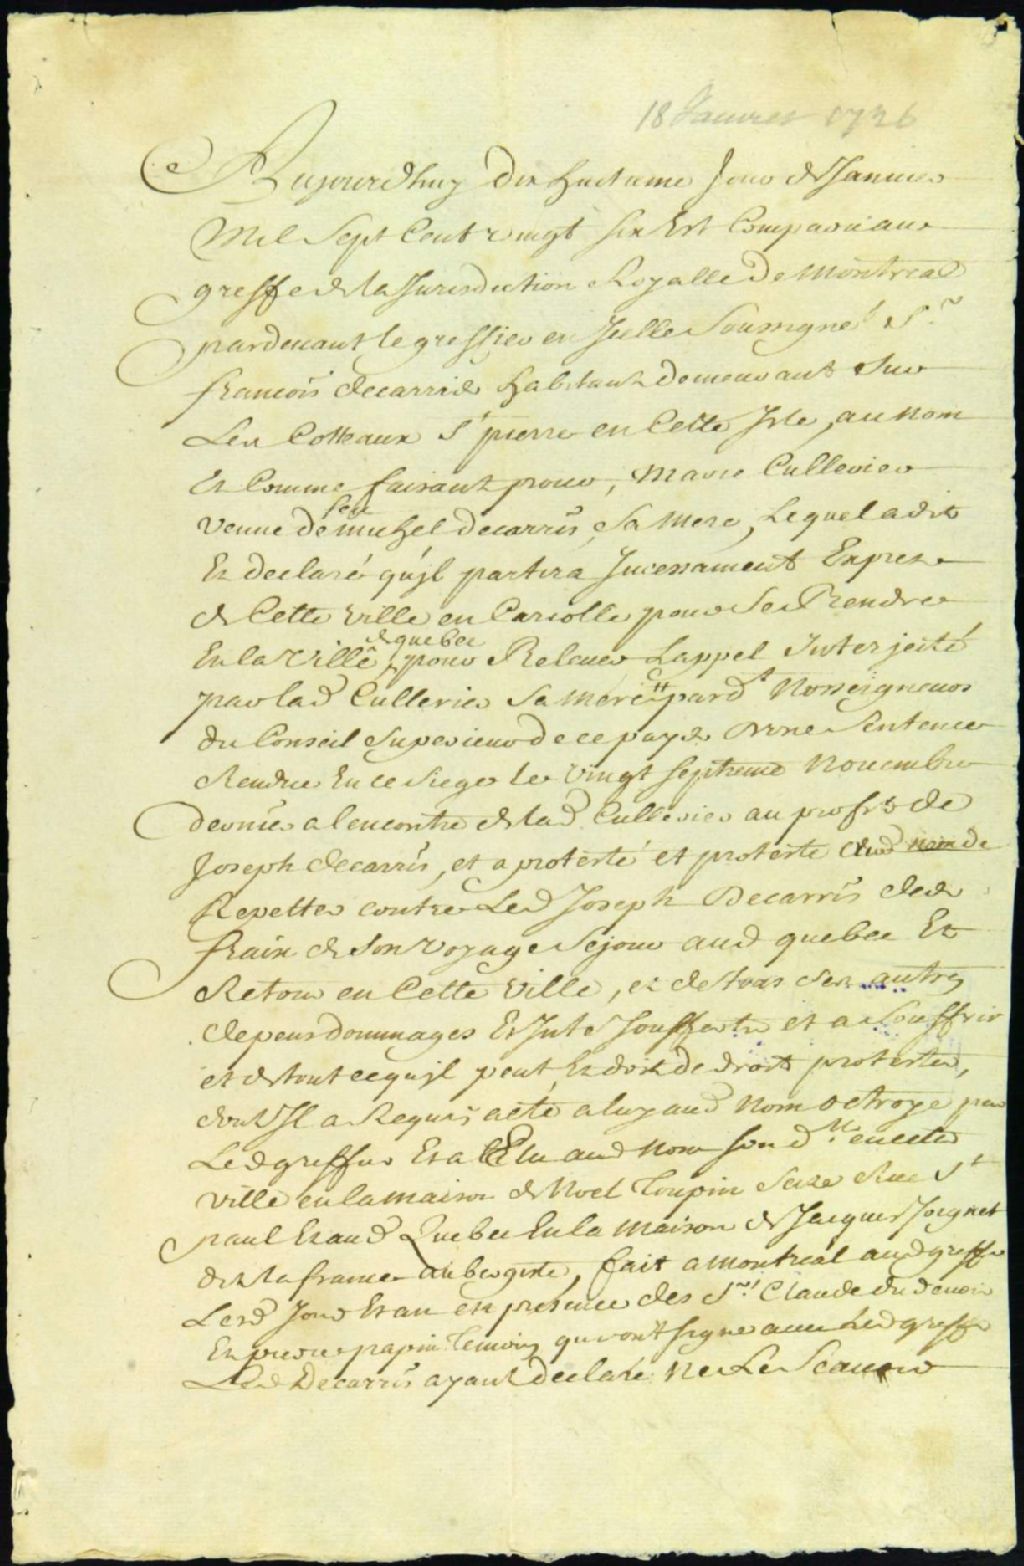 18 Janvier 1726
Aujourdhuy dix huitieme Jour de Janvier
Mil Sept Cent vingt six Est Comparu au
greffe de la Jurisdiction Royalle de Montreal
pardevant le greffier en Jcelle Soussigné Sr
francois decarris habitant demeurant sur
Les Costeaux St pierre en Cette Isle, au nom
Et Comme faisant pour, Marie Cullerier
Veuve de feu michel decarris, sa mere, Lequel a dit
Et declaré qu'jl partira Jncessament Expres
de Cette ville en Cariolle pour Se Rendre
En la Ville de quebec pour Relever Lappel Interjetté
par lad Cullerier Sa mere pardt Nosseigneurs
du Conseil Superieur de ce pays Dvne Sentence
Rendue En ce Siege le vingt septieme Novembre
dernier a lencontre de lad Cullerier au profit de
Joseph decarris, et a protesté et proteste aud nom de
Repetter contre Led Joseph Decarris des
fraix de Son voyage Sejour aud quebec Et
Retour en Cette Ville, et de tous Ses autres
depens dommages Et Jntes Soufferts et a Souffrir
et de tout ce qu'jl peut Et doit de droit protester,
dont Jl a Requis acte a luy aud Nom octroyé par
Led greffier Et a Elu aud Nom son d.le en cette
Ville en la maison de Noel Toupin Scize Rue St
paul Et aud Quebec En la Maison de Jacques Joignet
dit la france aubergiste, fait a Montreal aud greffe
Lesd Jour Et an en presence des Srs Claude du devoir
Et pierre papin temoins qui ont signe avec Led greffier
Led Decarris ayant declaré ne Le Scavoir